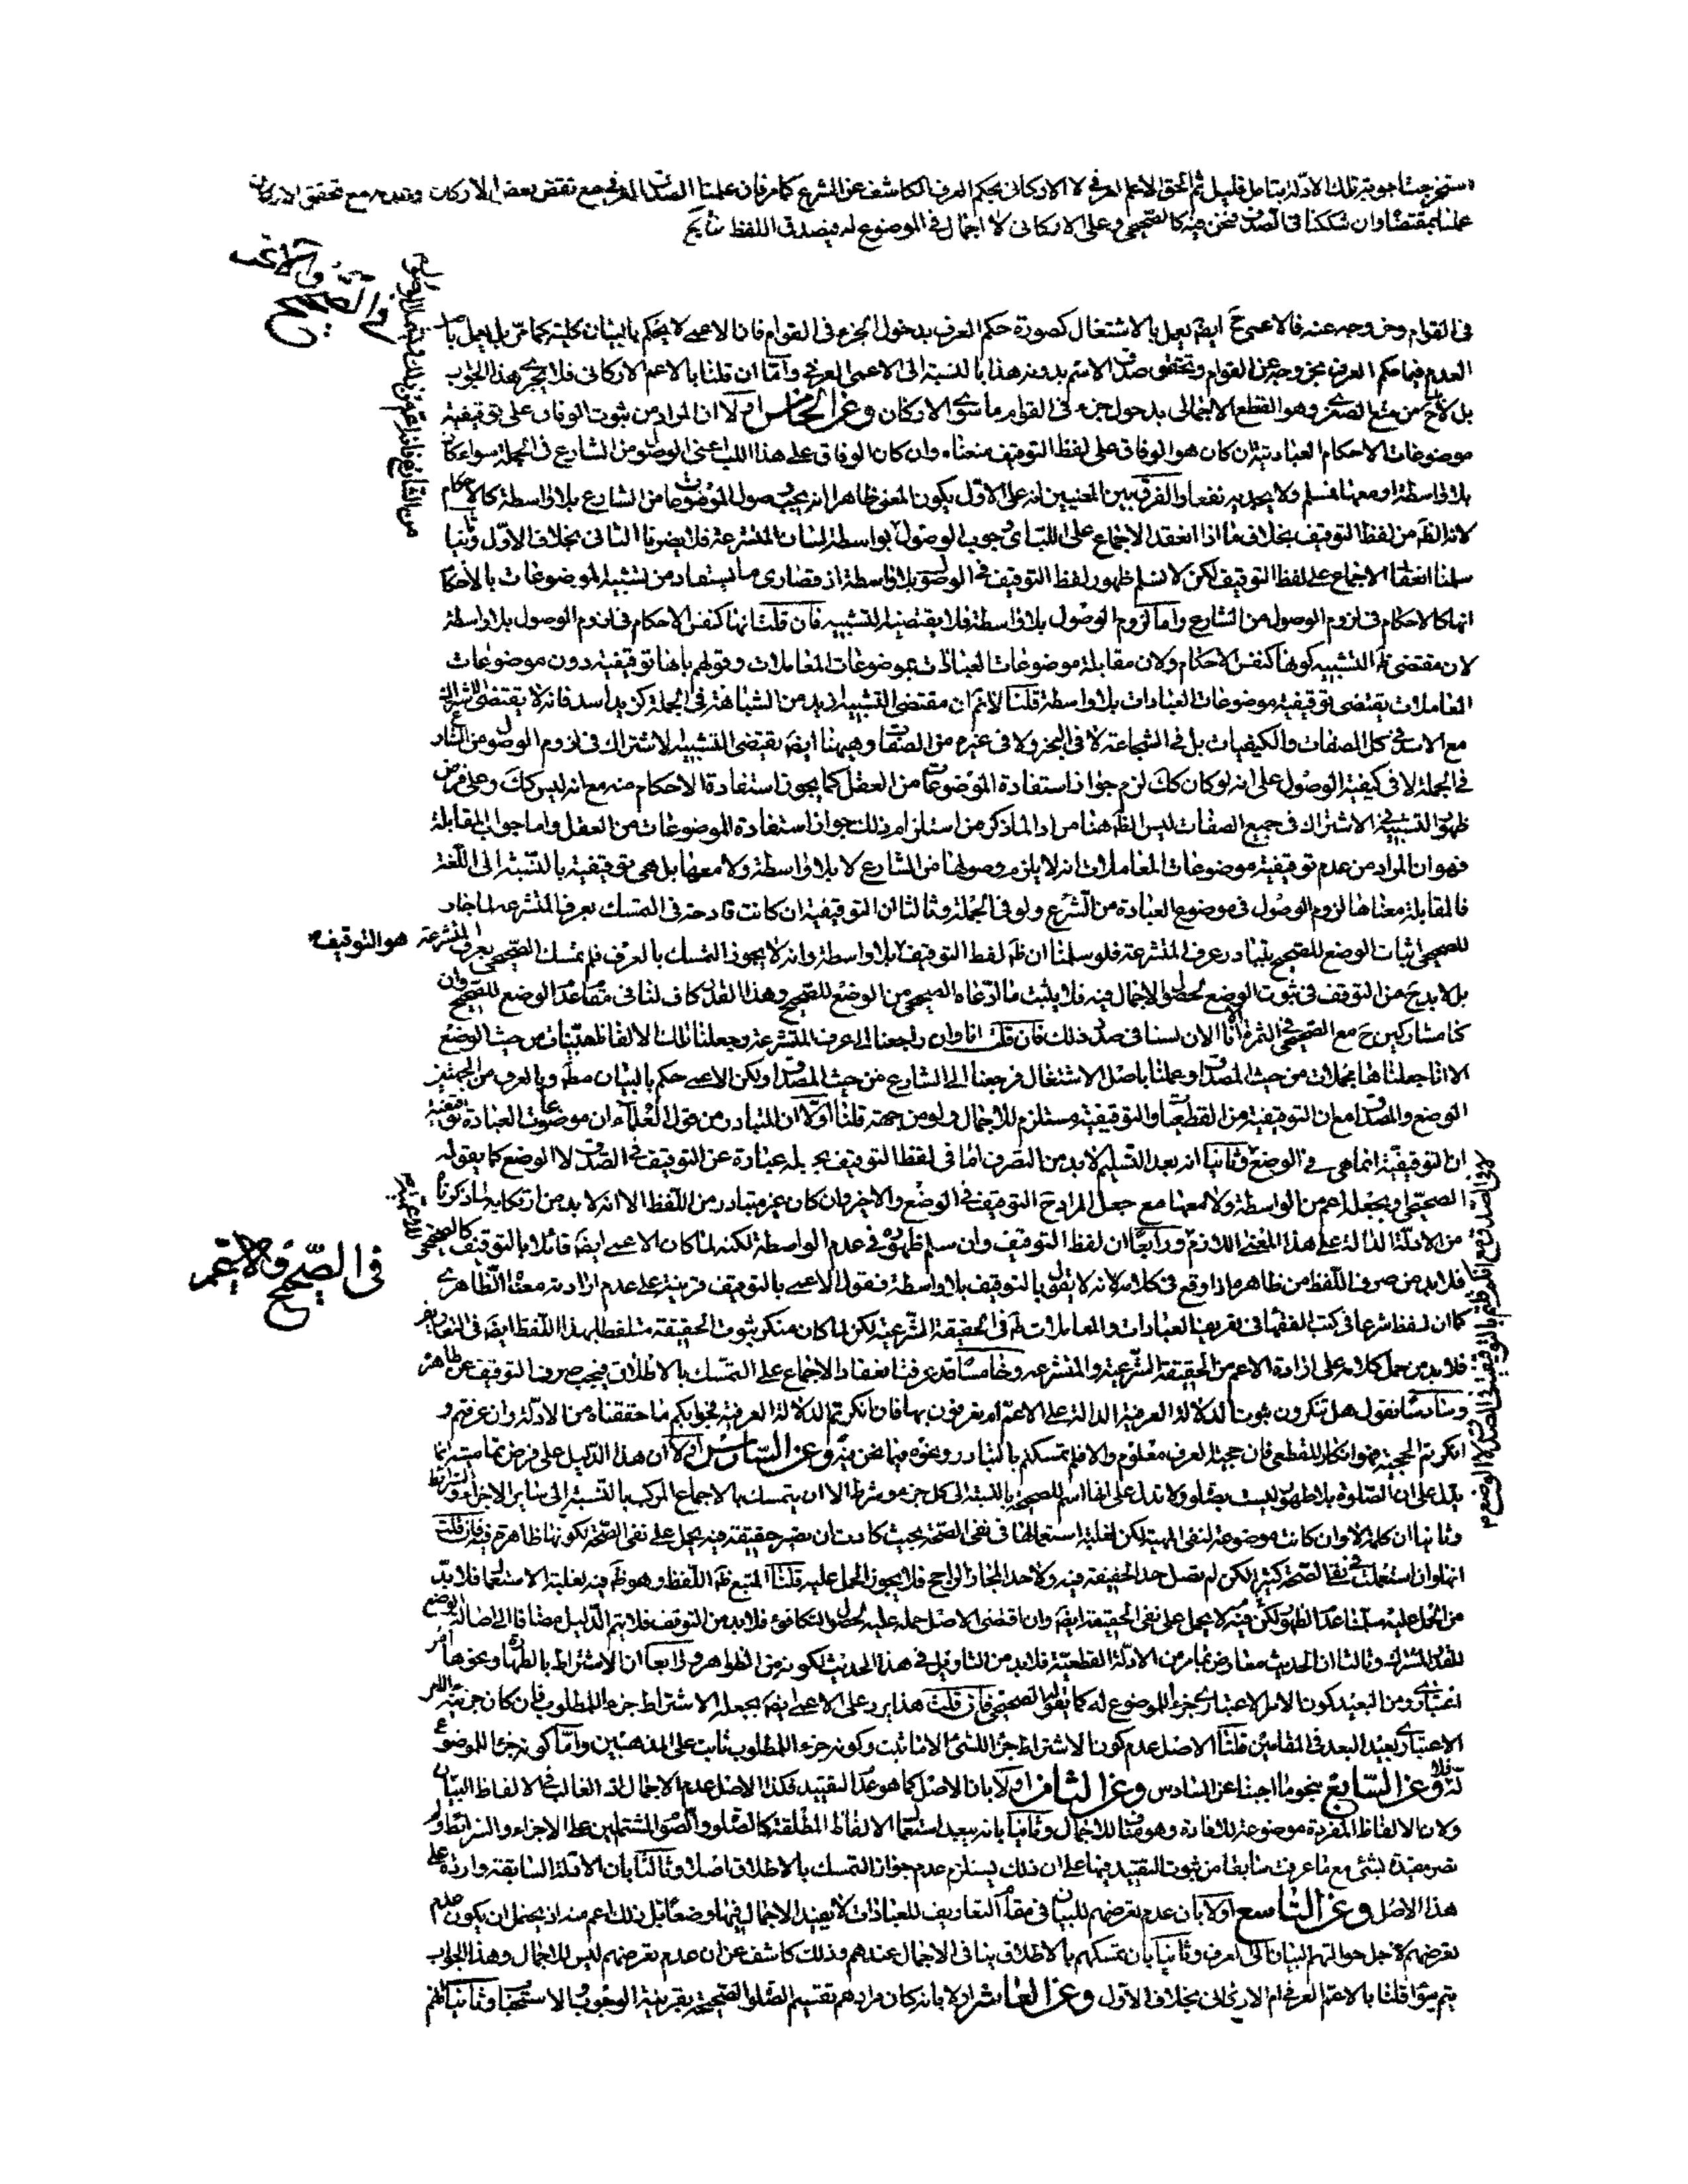 استخرجت اجوبة تلك الادلة بتامل قليل ثم الحق الاعم العرفى لا الاركانى بحكم العرف الكاشف عن الشرع كما مر فان علمنا الصدق العرفى مع نقض بعض الاركان وعدمه مع تحقق الاركان
عملنا بمقتضاه وان شككنا فى الصدق فنحن فيه كالصحيحى وعلى الاركانى لا اجمال فى الموضوع له فيصدق اللفظ
فى الصحيح والاعم
فى القوام وخروجه عنه فالاعمى ح ايضا يعمل بالاشتغال كصورة حكم العرف بدخول الجزء فى القوام فان الاعمى لا يحكم بالبيان كلية كما مر بل يعمل
العدم فيما حكم العرف بخروجه عن القوام وتحقق صدق الاسم بدونه هذا بالنسبة الى الاعمى العرفى واما ان قلنا بالاعم الاركانى فلا يجرى هذا الجواب
بل لابد ح من منع الصغرى وهو القطع الاجمالى بدخول جزء فى القوام ما سوى الاركان وعن الخامس اولا ان المراد من ثبوت الوفاق على توقيفية
موضوعات الاحكام العبادتية ان كان هو الوفاق على لفظ التوقيف منعناه وان كان الوفاق على هذا اللب اعنى الوصول من الشارع فى الجملة سواء كان
بلا واسطة او معها فمسلم ولا يجديه نفعا والفرق بين المعنيين انه على الاول يكون المعنى ظاهرا انه يجب وصول الموضوعات من الشارع بلا واسطة كالاحكام
لانه الظ من لفظ التوقيف بخلاف ما اذا انعقد الاجماع على اللب اى وجوب الوصول بواسطة لسان المتشرعة فلا يضرنا الثانى بخلاف الاول وثانيا
سلمنا انعقاد الاجماع على لفظ التوقيف لكن لا نسلم ظهور لفظ التوقيف فى الوصول بلا واسطة اذ قصارى ما يستفاد من تشبيه الموضوعات بالاحكام
انها كالاحكام فى لزوم الوصول من الشارع واما لزوم الوصول بلا واسطة فلا يقتضيه التشبيه فان قلت انها كنفس الاحكام فى لزوم الوصول بلا واسطة
لان مقتضى التشبيه كونها كنفس الاحكام ولان مقابلة موضوعات العبادات بموضوعات المعاملات وقولهم بانها توقيفية دون موضوعات
المعاملات يقتضى توقيفية موضوعات العبادات بلا واسطة قلنا لا نم ان مقتضى التشبيه ازيد من المشابهة فى الجملة كزيد اسد فانه لا يقتضى
مع الاسد فى كل الصفات والكيفيات بل فى الشجاعة لا فى البخر ولا فى غيره من الصفات وهيهنا ايضا يقتضى التشبيه الاشتراك فى لزوم الوصول من الشارع
فى الجملة لا فى كيفية الوصول على انه لو كان كك لزم جواز استفادة الموضوعات من العقل كما يجوز استفادة الاحكام منه مع انه ليس كك وعلى فرض
ظهور التشبيه فى الاشتراك فى جميع الصفات ليس الظ هنا مرادا لما ذكر من استلزام ذلك جواز استفادة الموضوعات من العقل واما جواب المقابلة
فهو ان المراد من عدم توقيفية موضوعات المعاملات انه لا يلزم وصولها من الشارع لا بلا واسطة ولا معها بل هى توقيفية بالنسبة الى اللغة
فالمقابلة معناها لزوم الوصول فى موضوع العبادة من الشرع ولو فى الجملة وثالثا ان التوقيفية ان كانت قادحة فى التمسك بعرف المتشرعة لما جاز
للصحيحى اثبات الوضع للصحيح بتبادر عرف المتشرعة فلو سلمنا ان ظ لفظ التوقيف بلا واسطة وانه لا يجوز التمسك بالعرف فلم تمسك الصحيحى بعرف المتشرعة هو التوقيف
بل لابد ح من التوقف فى ثبوت الوضع لحصول الاجمال فيه فلا يثبت ما ادعاه الصحيحى من الوضع للصحيح وهذا القدر كاف لنا فى مقام عدم الوضع للصحيح وان
كنا مشاركين ح مع الصحيحى فى الثمرة لانا الان لسنا فى صدد ذلك فان قلت انا وان راجعنا الى عرف المتشرعة وجعلنا تلك الالفاظ مبينات من حيث الوضع
الا انا جعلناها مجملات من حيث المصداق وعملنا باصل الاشتغال فرجعنا الى الشارع من حيث المصداق ولكن الاعمى حكم بالبيان مط وبالعرف من الجهتين
الوضع والمصداق مع ان التوقيفية من القطعيات والتوقيفية مستلزم للاجمال ولو من جهة قلنا اولا ان المتبادر من قول العلماء ان موضوعات العبادة توقيفية
ان التوقيفية انما هى فى الوضع وثانيا انه بعد التسليم لابد من التصرف اما فى لفظ التوقيف بجعله عبارة عن التوقيف فى الصدق لا الوضع كما يقوله
الصحيحى او بجعله اعم من الواسطة ولا معها مع جعل المراد ح التوقيف فى الوضع والاخير وان كان غير متبادر من اللفظ الا انه لابد من ارتكابه لما ذكرنا
من الادلة الدالة على هذا المعنى اللازم ورابعا ان لفظ التوقيف وان سلم ظهوره فى عدم الواسطة لكنه لما كان الاعمى ايضا قائلا بالتوقيف كالصحيحى
فى الصحيح والاعم
فلابد من صرف اللفظ من ظاهره اذا وقع فى كلامه لانه لا يقول بالتوقيف بلا واسطة فقول الاعمى بالتوقيف قرينة على عدم ارادته معناه الظاهرى
كما ان لفظ شرعا فى كتب الفقهاء فى تعريف العبادات والمعاملات ظ فى الحقيقة الشرعية لكن لما كان منكر ثبوت الحقيقة متلفظا بهذا اللفظ ايضا فى التعاريف
فلابد من حمل كلامه على ارادة الاعم من الحقيقة الشرعية والمتشرعه وخامسا قد عرفت انعقاد الاجماع على التمسك بالاطلاق فيجب صرف التوقيف عن ظاهره
وسادسا نقول هل تنكرون ثبوت الدلالة العرفية الدالة على الاعم ام تعرفون بها فان انكرتم الدلالة العرفية فجوابكم ما حققناه من الادلة وان عرفتم و
انكرتم الحجية فهو انكار للقطعى فان حجية العرف معلوم والا فلم تمسكتم بالتبادر ونحوه فيما نحن فيه وعن السادس اولا ان هذا الدليل على فرض تماميته انما
يدل على ان الصلوة بلا طهور ليست بصلوة ولا تدل على انها اسم للصحيح بالنسبة الى كل جزء وشرط الا ان يتمسك بالاجماع المركب بالنسبة الى ساير الاجزاء والشرائط
وثانيا ان كلمة لا وان كانت موضوعة لنفى المهية لكن لغلبة استعمالها فى نفى الصحة بحيث كادت ان تصير حقيقة فيه يحمل على نفى الصحة لكونها ظاهرة فيه فان قلت
انها وان استعملت فى نفى الصحة كثيرا لكن لم تصل حد الحقيقة فيه ولا حد المجاز الراجح فلا يجوز الحمل عليه قلنا المتبع ظ اللفظ وهو ظ فيه لغلبة الاستعمال فلابد
من الحمل عليه سلمنا عدم الظهور لكن فيه لا يحمل على نفى الحقيقة ايضا وان اقتضى الاصل حمله عليه لحصول التكافؤ فلابد من التوقف فلا يتم الدليل مضافا الى اصالة الوضع
للقدر المشترك وثالثا ان الحديث معارض بما مر من الادلة القطعية فلابد من التاويل فى هذا الحديث لكونه من الظواهر ورابعا ان الاشتراط بالطهارة ونحوها امر
اعتبارى ومن البعيد كون الامر الاعتبارى جزء الموضوع له كما يقوله الصحيحى فان قلت هذا يرد على الاعمى ايضا بجعله الاشتراط جزء المطلوب فان كان جزئية الامر
الاعتبارى بعيدا لبعد فى المقامين قلنا الاصل عدم كون الاشتراط جزء الشئ الا ما ثبت وكونه جزء المطلوب ثابت على المذهبين واما كونه جزء الموضوع
له فلا وعن السابع بنحو ما اجبنا عن السادس وعن الثامن اولا بان الاصل كما هو عدم التقييد فكذا الاصل عدم الاجمال لان الغالب فى الالفاظ البيان
ولان الالفاظ المفردة موضوعة للافادة وهو مناف للاجمال وثانيا بانه يبعد استعمال الالفاظ المطلقة كالصلوة والصوم المشتملين على الاجزاء والشرائط و
تصير مقيدة بشئ مع ما عرفت سابقا من ثبوت التقييد فيها على ان ذلك يستلزم عدم جواز التمسك بالاطلاق اصلا وثالثا بان الادلة السابقة واردة على
هذا الاصل وعن التاسع اولا بان عدم تعرضهم للبيان فى مقام التعاريف للعبادات لا يفيد الاجمال فيها وضعا بل ذلك اعم منه اذ يحتمل ان يكون عدم
تعرضهم لاجل حوالتهم البيان الى العرف وثانيا بان تمسكهم بالاطلاق ينافى الاجمال عندهم وذلك كاشف عن ان عدم تعرضهم ليس للاجمال وهذا الجواب
يتم سواء قلنا بالاعم العرفى ام الاركانى بخلاف الاول وعن العاشر اولا بانه كان مرادهم تقسيم الصلوة الصحيحة بقرينة الوجوب والاستحباب وثانيا انهم